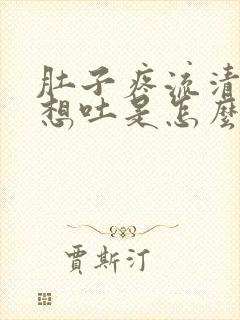 肚子疼流清
想吐是怎麼
賈斯汀